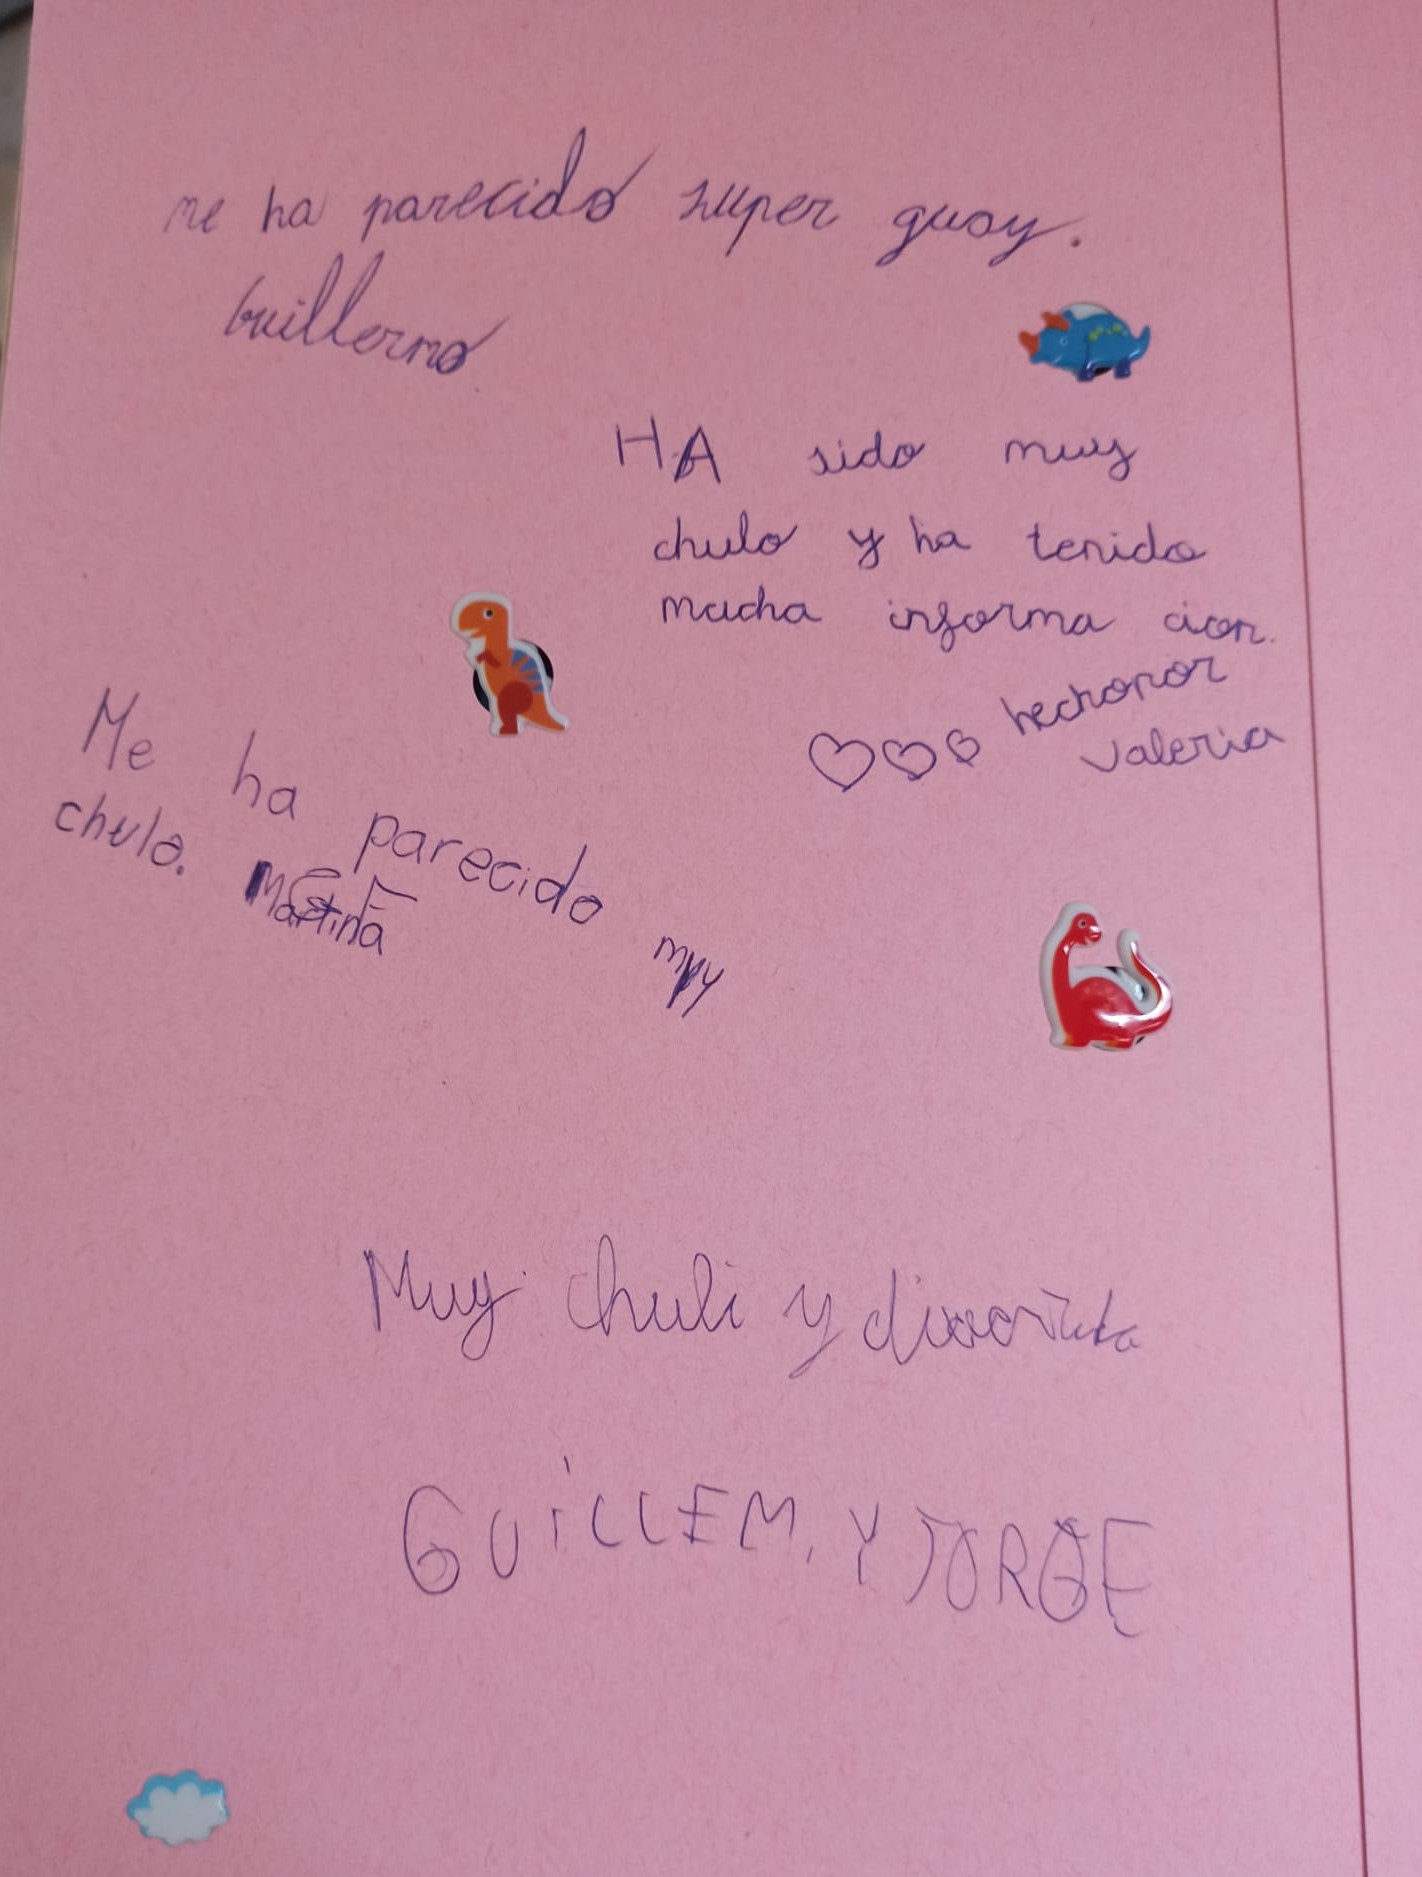 me ha parecido super guay.
Guillermo
HA sido muy
chulo y ha tenido
mucha informa cion.
hechopor
Valeria
Me ha parecido muy
chulo. Martina
Muy chuli y
GUILLEM, Y JORGE